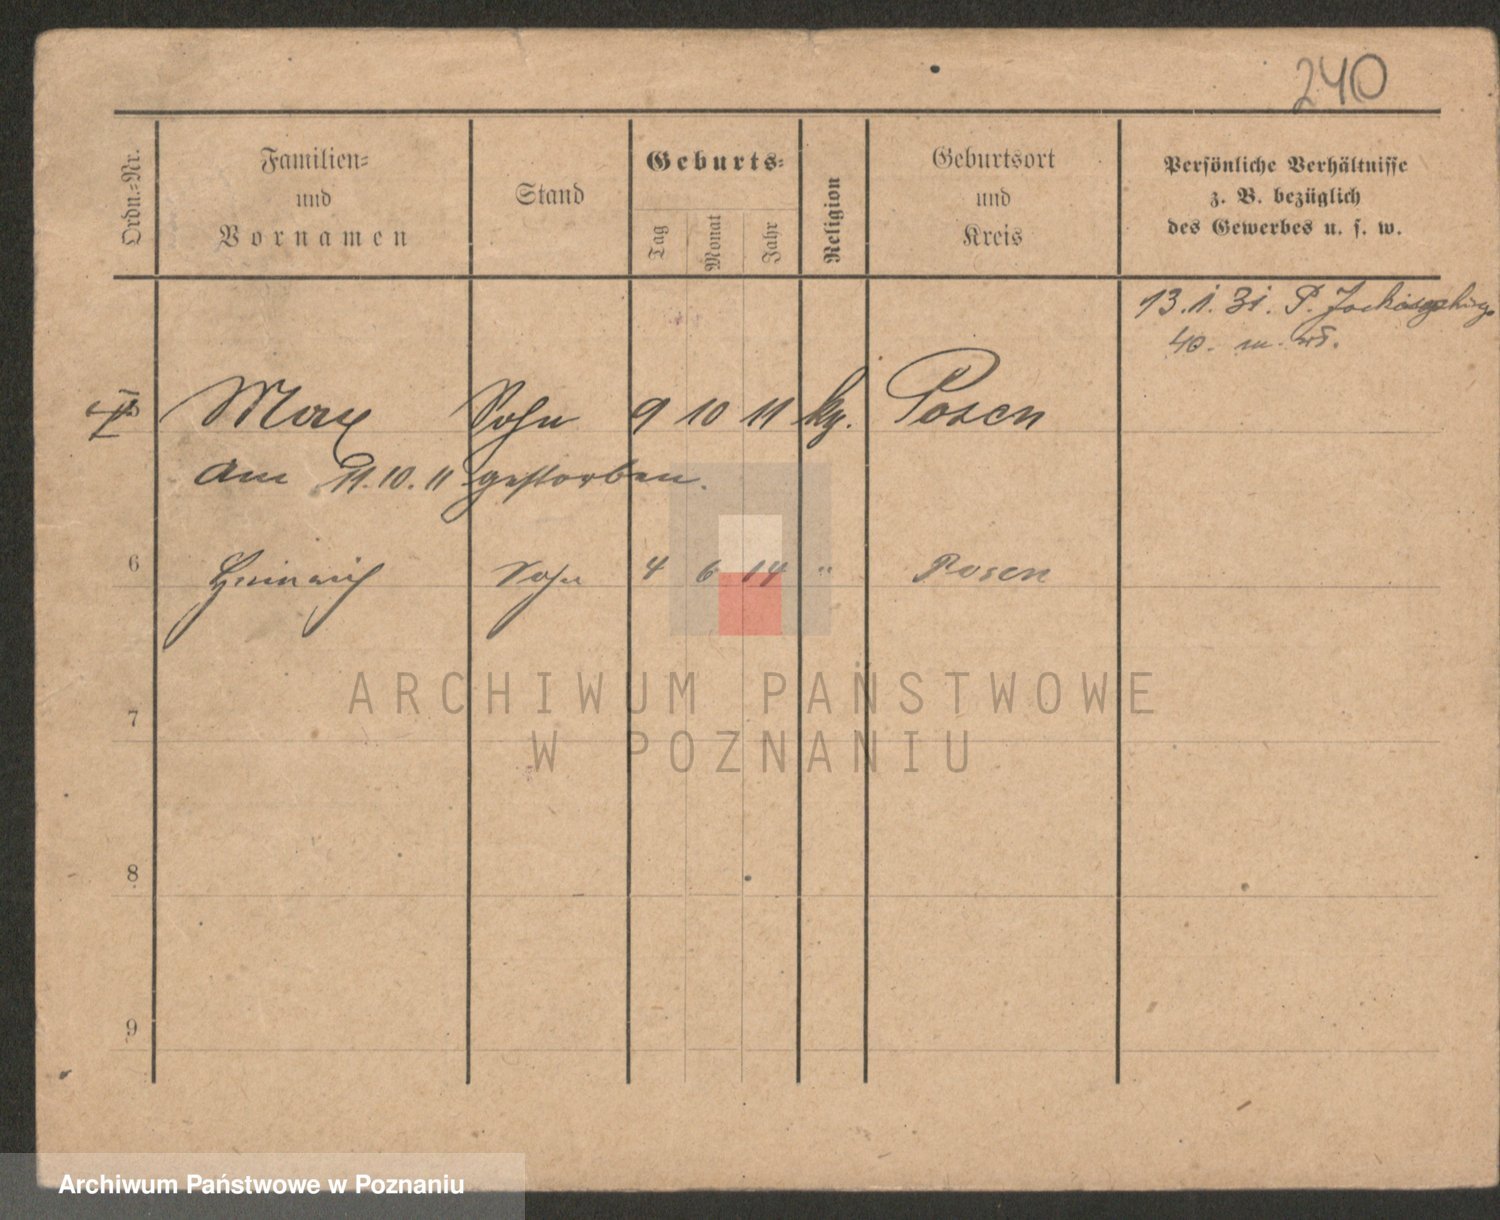 240
Ordn.=Nr.
Familien=
und
Vornamen
Stand
Geburts=
Tag
Monat
Jahr
Religion
Geburtsort
und
Kreis
Persönliche Verhältnisse
z. B. bezüglich
des Gewerbes u. s. w.
13. 1. 31. P.
40.
Max Sohn 9 10 11 kg. Posen
am 11. 10. 11 gestorben.
6 Heinrich Sohn 4 6 14 " Posen
ARCHIWUM PAŃSTWOWE
W POZNANIU
7
8
9
Archiwum Państwowe w Poznaniu